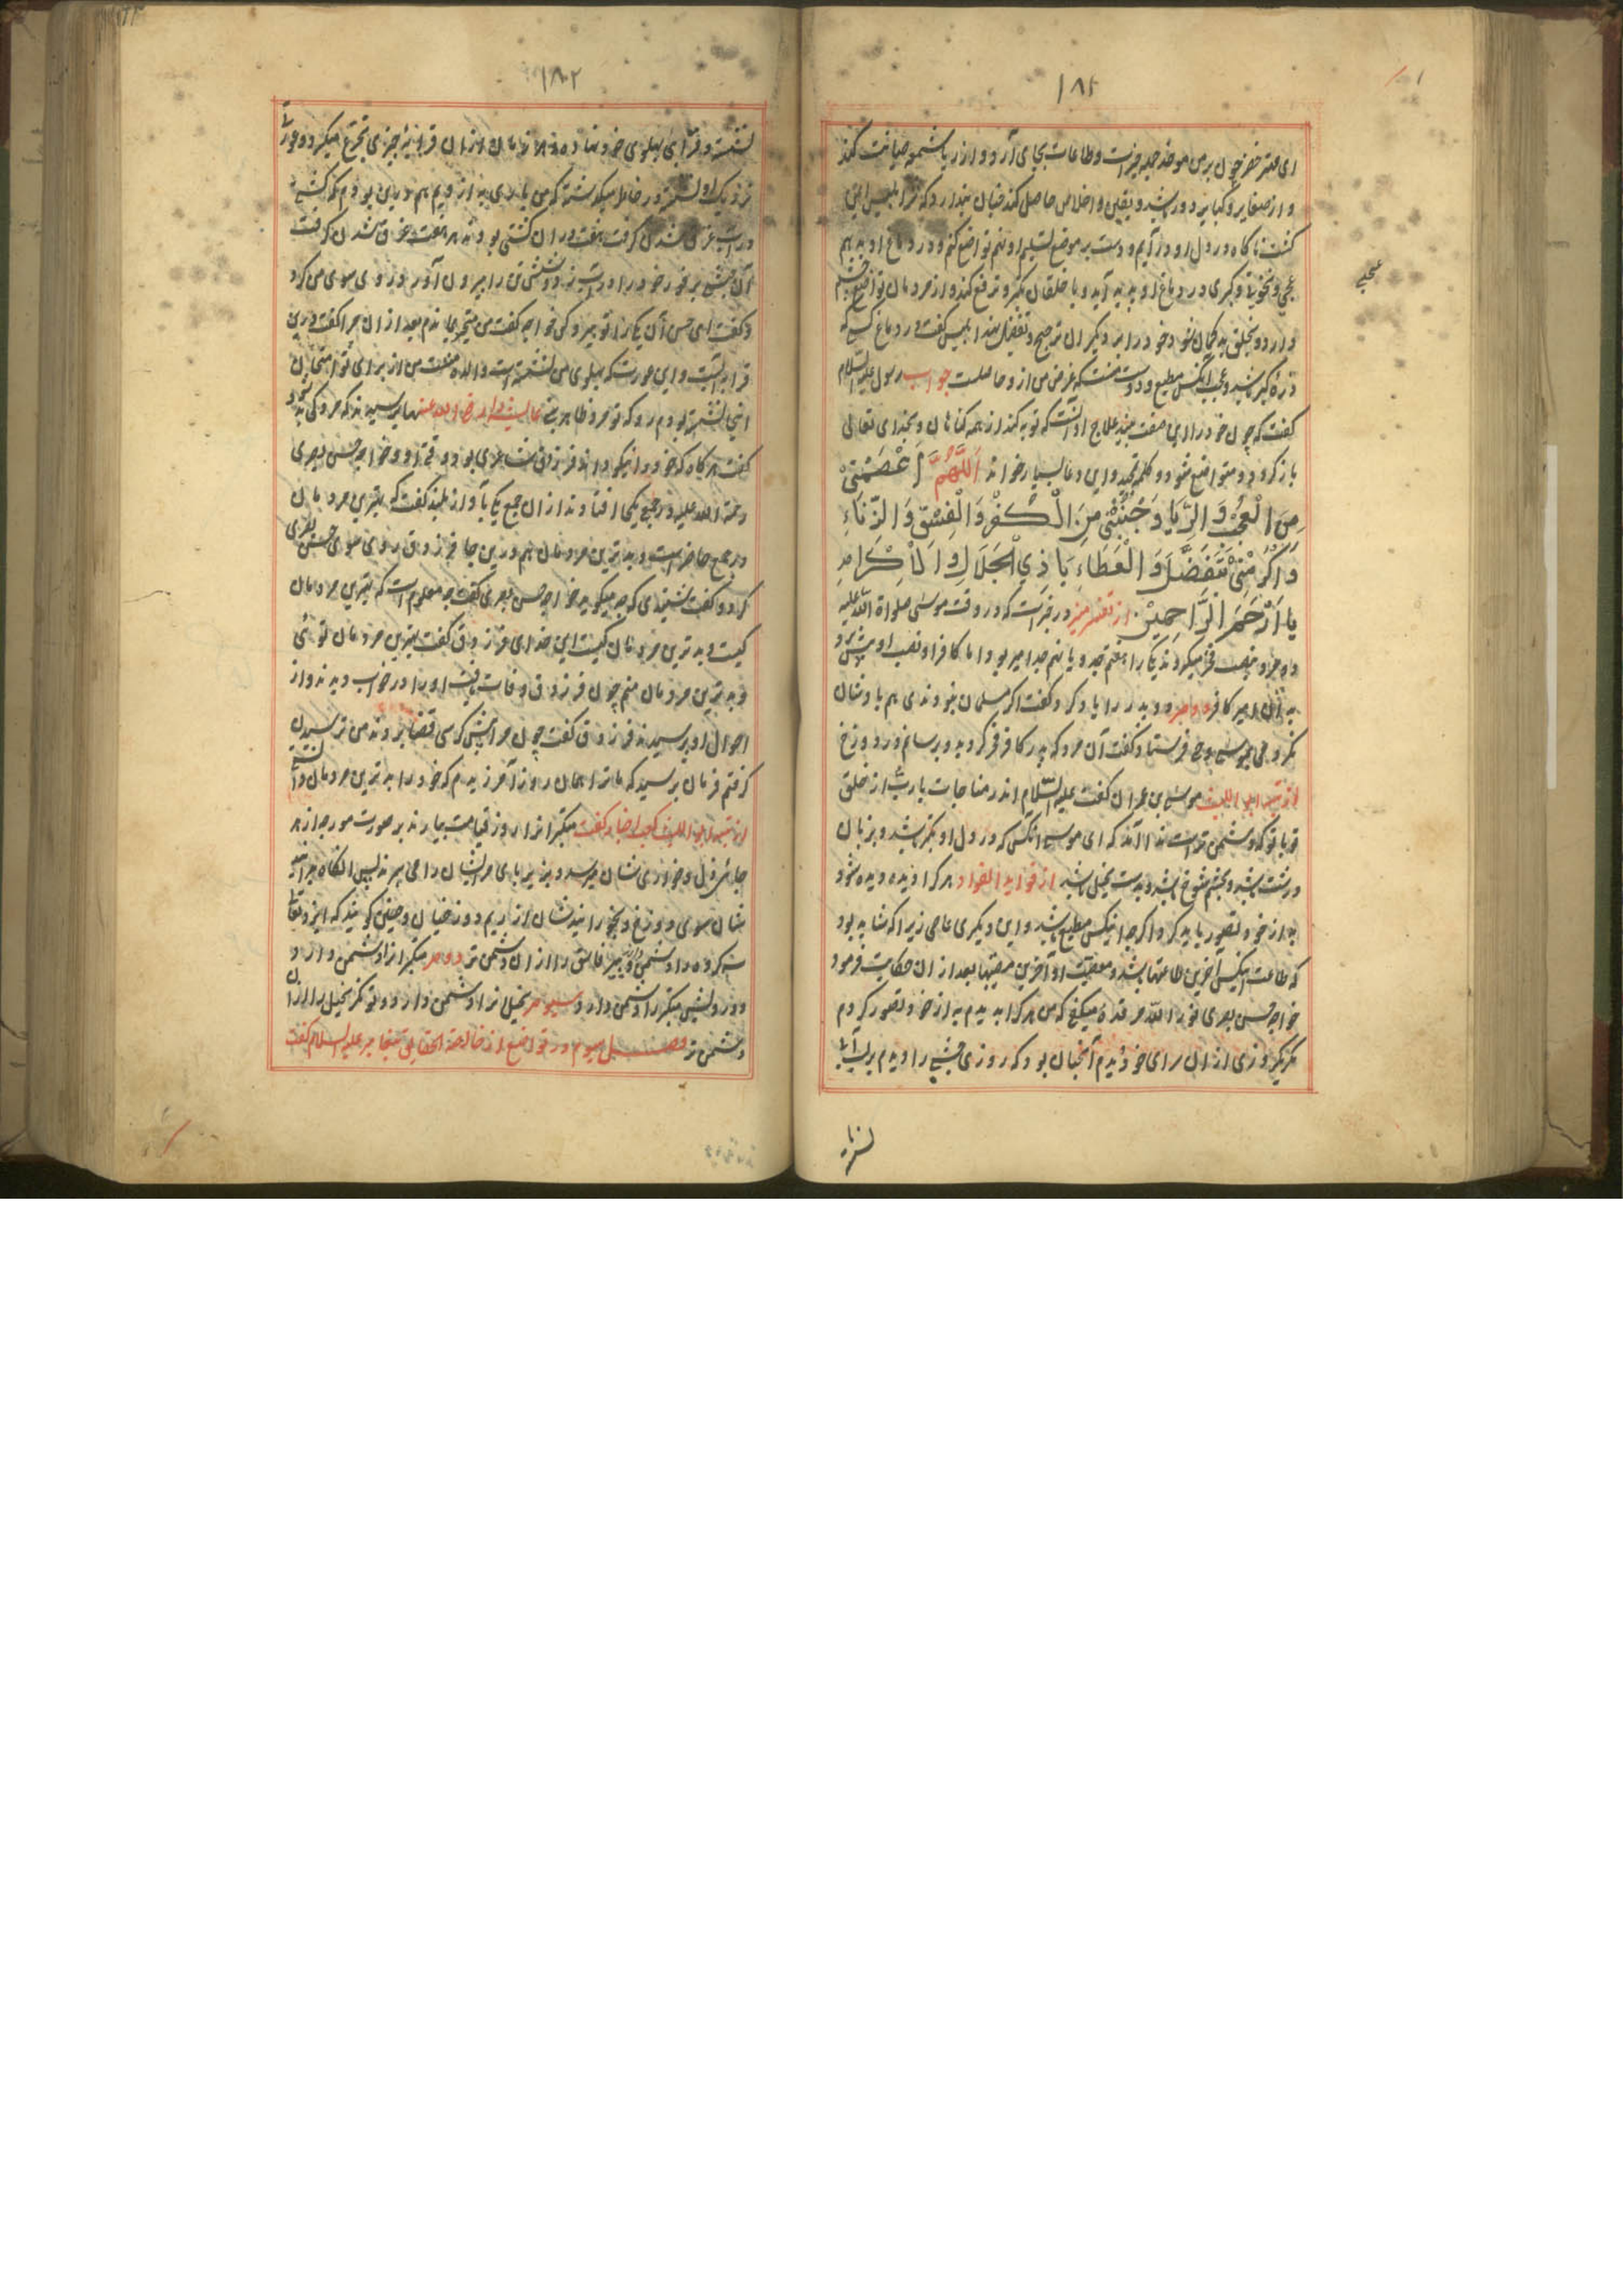 ۱۸۲
ای مهتر خضر چون برین موحد چیزیست وطاعات بجای آرد و از ریا شمعه صیانت کند
و از صغایر و کبایر دور باشد و یقین و اخلاص حاصل کند چنان پندارد که مرا ابلیس این
کشت ناکاه در دل او در آیم و دست بر موضع تسلیم او نهم تواضع کنم و در دماغ او بدیم
عجبی و نخوتی و کبری در دماغ او پدید آید و با خلقان تکبر و ترفع کند و از مردمان تواضع چشم
دارد و بخلق به کمان شود و خود را بر دیکران ترجیح و تفضیل نهد ابلیس گفت در دماغ کسی که
ذره کبر باشد و عجب آنکس مطیع و دوست منست که غرض من ازو حاصلست جواب رسول علیه السلام
کفت که چون خود را درین صفت بیند علاج او آنست که توبه کند از همه کناهان و بخدای تعالی
باز کردد و متواضع شود و کلمه تمجید و این دعا بسیار خواند اَللّٰهُمَّ اعْصِمْنِیْ
مِنَ الْعُجْبِ وَ الرِّیَا وَ جَنِّبْنِیْ مِنَ الْکُفْرِ وَ الْفِسْقِ وَ الزِّنَاءِ
وَ اَکْرِمْنِیْ بِتَفَضُّلِ وَ الْعَطَاءِ یَا ذِی الْجَلَالِ وَ الْاِکْرَامِ
یا اَرْحَمَ الرَّاحِمِیْنَ از تفسیر در خبرست که در وقت موسی صلواة الله علیه
دو مرد بنصب فخر میکردند یکی را هفتم جد و یا نهم جد امیر بود اما کافر او نصب او پیش برد
به آن امیر کافر و دوم مرد پدر را یاد کرد و گفت اکر مسلمان نبودندی هم یاد نشان
نکردمی بموسی وحی فرستاد کفت آن مرد که پدر کافر فخر کرد بدو برسانم در دوزخ
از تنبیه ابو اللیث موسی بن عمران گفت علیه السلام اندر مناجات یارب از خلق
تو با تو که دشمن تر است ندا آمد که ای موسی آنکس که در دل او تکبر باشد و بزبان
درشت باشد و بچشم شوخ باشد و بدست بخیل باشد از فواید الفواد هر کرا دیده دیده شود
به از خود تصور باید کرد اکر چه اینکس مطیع باشد و این دیکری عاصی زیرا که شاید بود
که طاعت اینکس آخرین طاعتها باشد و معصیت او آخرین معصیتها بعد از ان حکایت فرمود
خواجه حسن بصری نور الله مرقده میکفت که من هر کرا بدیدم به از خود تصور کردم
مکر یکروزی از ان سرای خود دیدم آنچنان بود که روزی حبشی را دیدم بر لب آبی
عجبی
۱۸۳
نشسته و قرابه پهلوی خود نهاده و هر زمان از ان قرابه چیزی تجرع میکرد و عورتی
نزدیک او نشسته در خاطر میکذشت که من باری به از ویم هم درین بودم که کشتی
در آب غرق شدن کرفت هفت تن در ان کشتی بودند هر هفت غرق شدن کرفت
آن حبشی بر فور خود را در آب زد و شش تن را بیرون آورد و روی سوی من کرد
و کفت ای حسن آن یکی را تو بیرون کن خواجه کفت من متحیر بماندم بعد از ان مرا گفت درین
قرابه آبست و این عورت که پهلوی من نشسته است والده منست من از برای تو امتحان
اینجا نشسته بودم رو که تو مرد ظاهر بینی عایشه را رضی الله عنها پرسیدند که مرد کی بد شود
گفت هر کاه که خود را نیکو داند فرزدق شاعری بود وقتی او و خواجه حسن بصری
رحمة الله علیه در جمع یکجا افتادند از ان جمع یکی بآواز بلند کفت که بهترین مردمان
در جمع حاضر است و بدترین مردمان هم درین جا فرزدق روی سوی حسن بصری
کرد و کفت شنیدی که چه میکوید خواجه حسن بصری کفت چه معلوم است که بهترین مردمان
کیست و بدترین مردمان کیست این خدای فرزدق کفت بهترین مردمان توئی
و بدترین مردمان منم چون فرزدق وفات یافت او را در خواب دیدند و از
احوال او پرسیدند فرزدق کفت چون مرا پیش کرسی قضا بردند من ترسیدن
کرفتم فرمان برسید که ما ترا همان روز آمرزیدیم که خود را بدترین مردمان دانستی
از تنبیه ابو اللیث کعب اخبار کفت متکبر انرا روز قیامت بیارند بر صورت مورچه از هر
جائی ذل و خواری بشان میرسد و بزیر پای مر ایشان را می سپرند پس انکاه
شان سوی دوزخ و بخورانیدشان از ریم دوزخیان و چنین کویند که ایزد تعالی
سه کروه را دشمن و پیر فاسق را از ان دشمن تر دوم متکبر انرا دشمن دارد
و درویش متکبر را دشمن دارد سیوم بخیل نرا دشمن دارد و تونکر بخیل را از ان
دشمن تر فصل سیوم در تواضع از خالصة الحقایق پیغامبر علیه السلام گفت